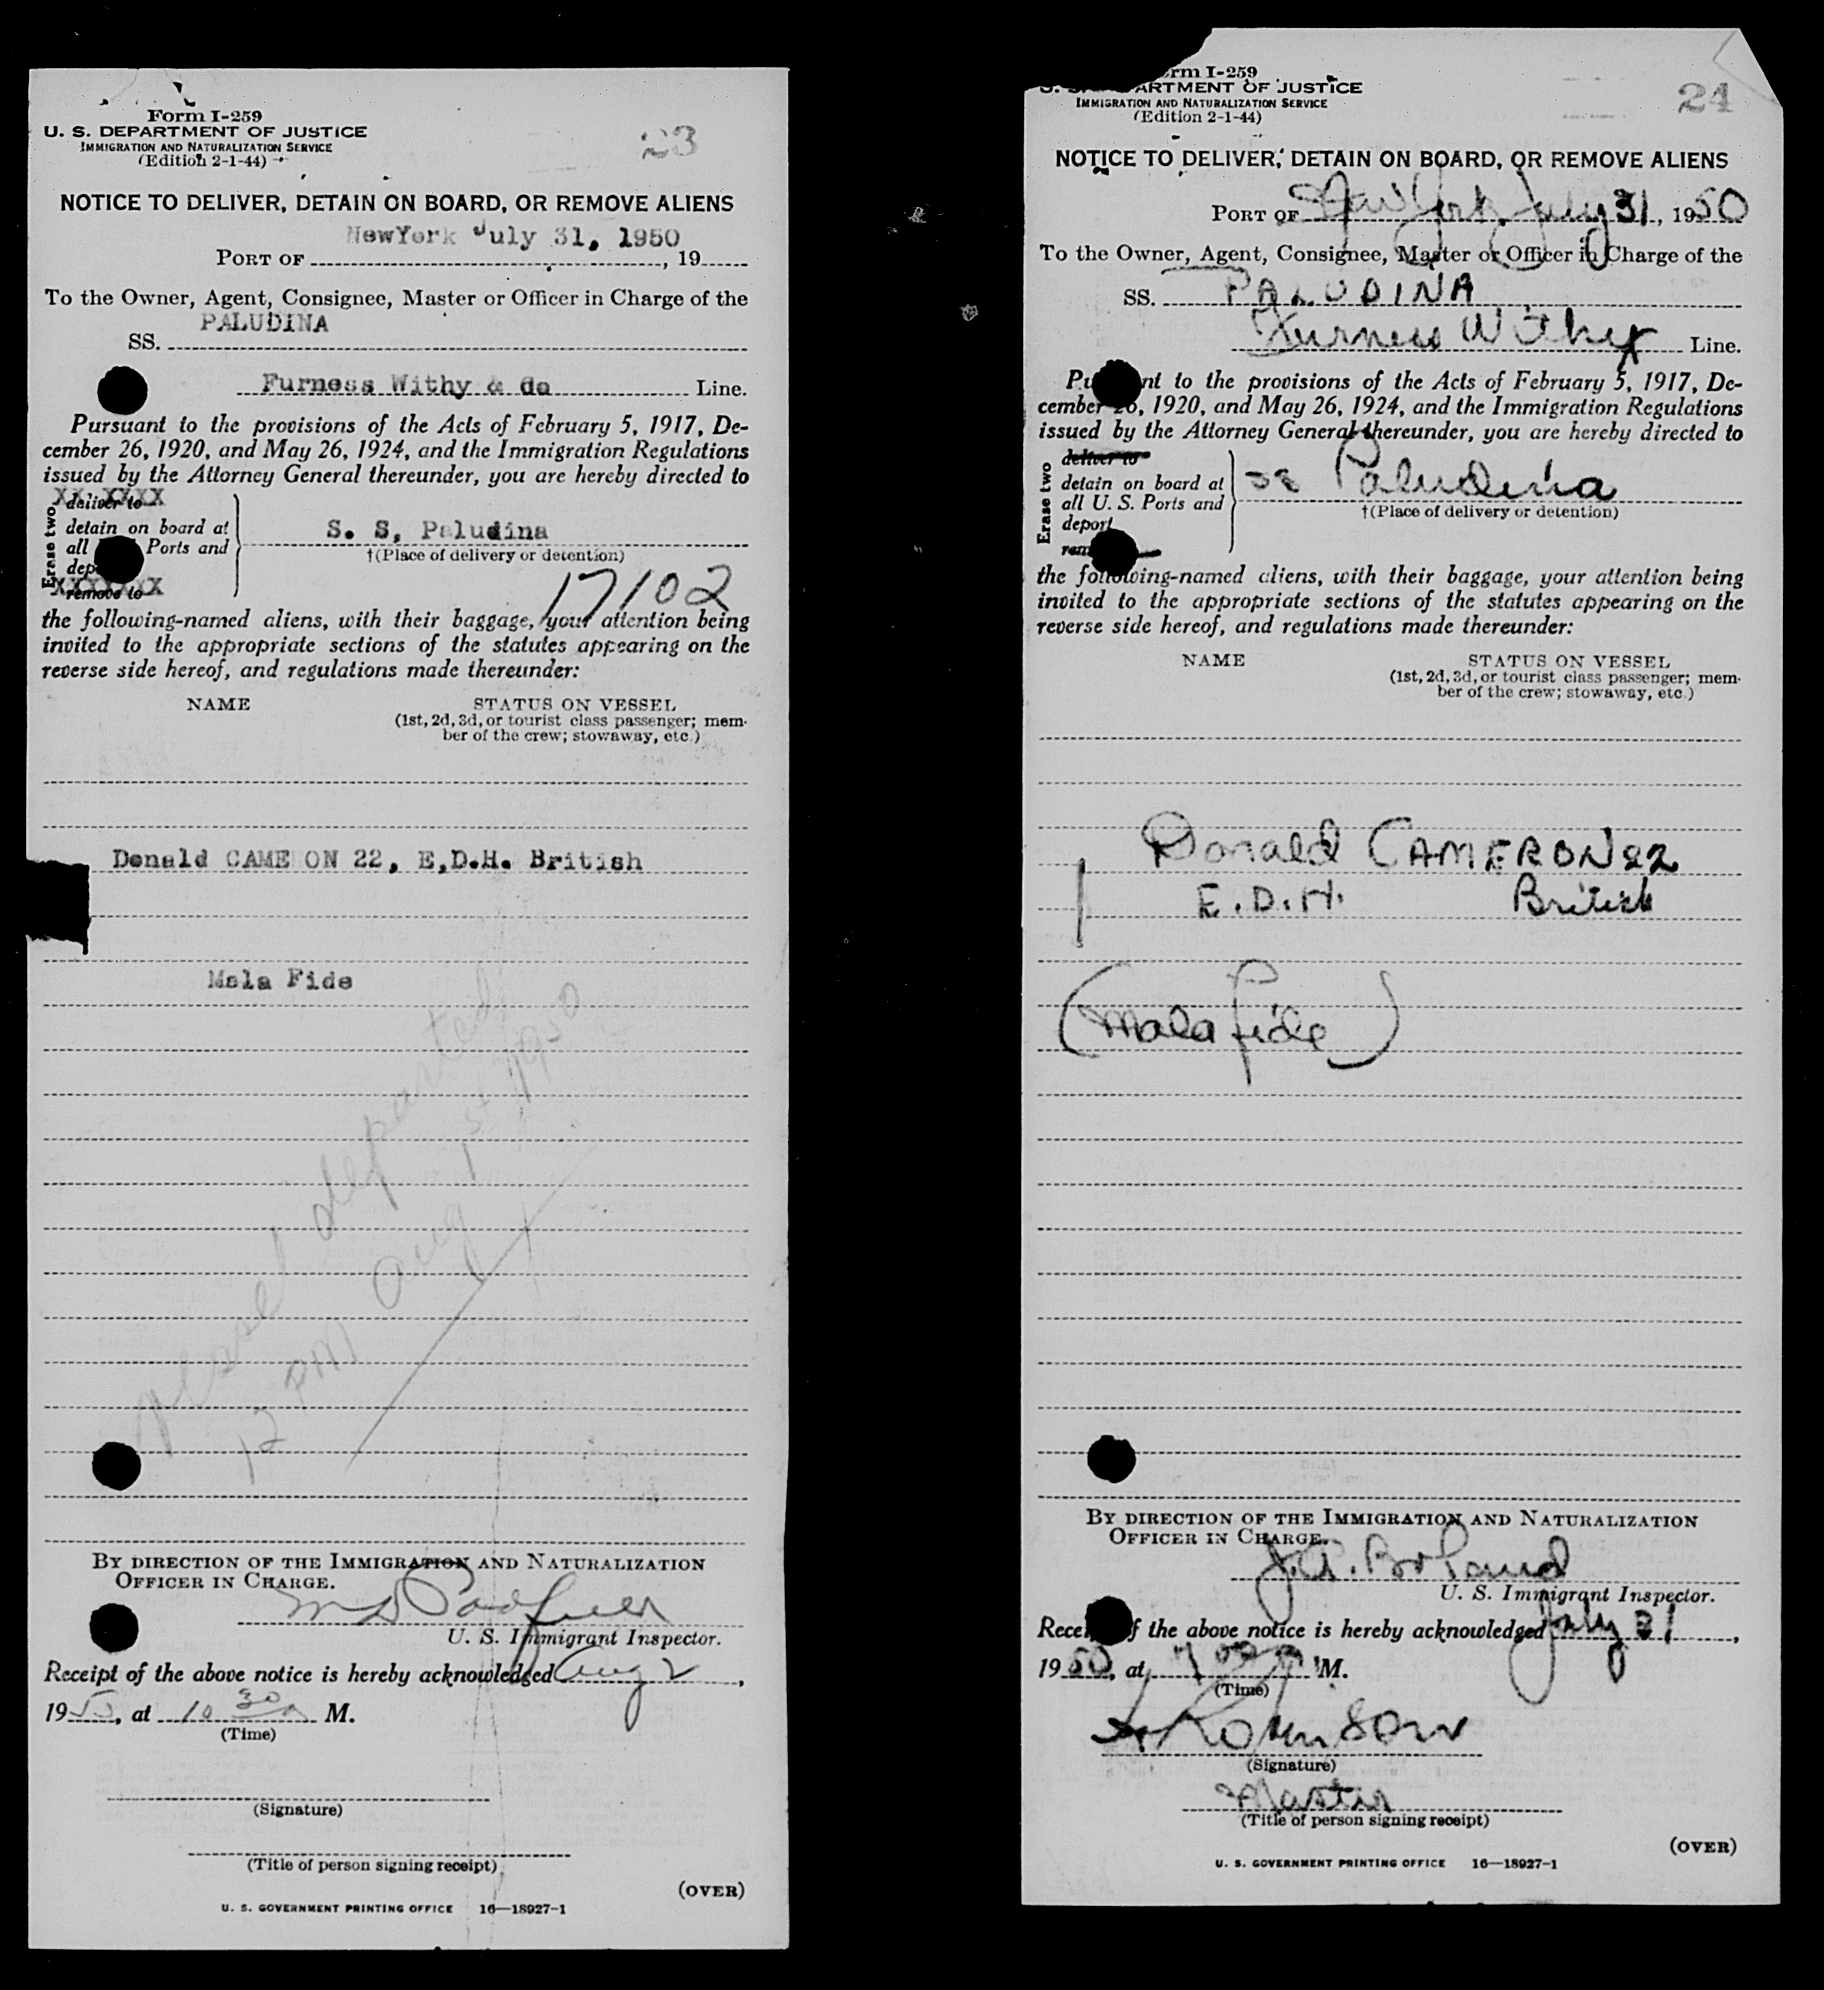 Form I-259
U. S. DEPARTMENT OF JUSTICE
IMMIGRATION AND NATURALIZATION SERVICE
(Edition 2-1-44)
23
NOTICE TO DELIVER, DETAIN ON BOARD, OR REMOVE ALIENS
NewYork July 31, 1950
PORT OF , 19
To the Owner, Agent, Consignee, Master or Officer in Charge of the
PALUDINA
SS.
Furness Withy & Co Line.
Pursuant to the provisions of the Acts of February 5, 1917, De-
cember 26, 1920, and May 26, 1924, and the Immigration Regulations
issued by the Attorney General thereunder, you are hereby directed to
Erase two
XX XXXX
deliver to
detain on board at
all Ports and
dep
XXXXXXX
remove to
S. S, Paludina
†(Place of delivery or detention)
17102
the following-named aliens, with their baggage, your attention being
invited to the appropriate sections of the statutes appearing on the
reverse side hereof, and regulations made thereunder:
NAME STATUS ON VESSEL
(1st, 2d, 3d, or tourist class passenger; mem-
ber of the crew; stowaway, etc.)
Donald CAME ON 22, E,D.H. British
Mala Fide
vessel departed
12 PM Aug 1st 1950
BY DIRECTION OF THE IMMIGRATION AND NATURALIZATION
OFFICER IN CHARGE.
U. S. Immigrant Inspector.
Receipt of the above notice is hereby acknowledged Aug 2,
1950, at 10 30 a M.
(Time)
(Signature)
(Title of person signing receipt)
(OVER)
U. S. GOVERNMENT PRINTING OFFICE 16—18927-1
rm I-259
ARTMENT OF JUSTICE
IMMIGRATION AND NATURALIZATION SERVICE
(Edition 2-1-44)
24
NOTICE TO DELIVER, DETAIN ON BOARD, OR REMOVE ALIENS
PORT OF New York, July 31, 1950
To the Owner, Agent, Consignee, Master or Officer in Charge of the
SS. PALUDINA
Furness Withy Line.
Pu nt to the provisions of the Acts of February 5, 1917, De-
cember 26, 1920, and May 26, 1924, and the Immigration Regulations
issued by the Attorney General thereunder, you are hereby directed to
Erase two
deliver to
detain on board at
all U. S. Ports and
deport
rem
ss Paludina
†(Place of delivery or detention)
the following-named aliens, with their baggage, your attention being
invited to the appropriate sections of the statutes appearing on the
reverse side hereof, and regulations made thereunder:
NAME STATUS ON VESSEL
(1st, 2d, 3d, or tourist class passenger; mem-
ber of the crew; stowaway, etc.)
Donald CAMERON 22
E.D.H. British
(Mala fide)
BY DIRECTION OF THE IMMIGRATION AND NATURALIZATION
OFFICER IN CHARGE.
J.A. Borland
U. S. Immigrant Inspector.
Rece f the above notice is hereby acknowledged July 31,
1950, at 7 00 P M.
(Time)
Robinson
(Signature)
Master
(Title of person signing receipt)
(OVER)
U. S. GOVERNMENT PRINTING OFFICE 16—18927-1